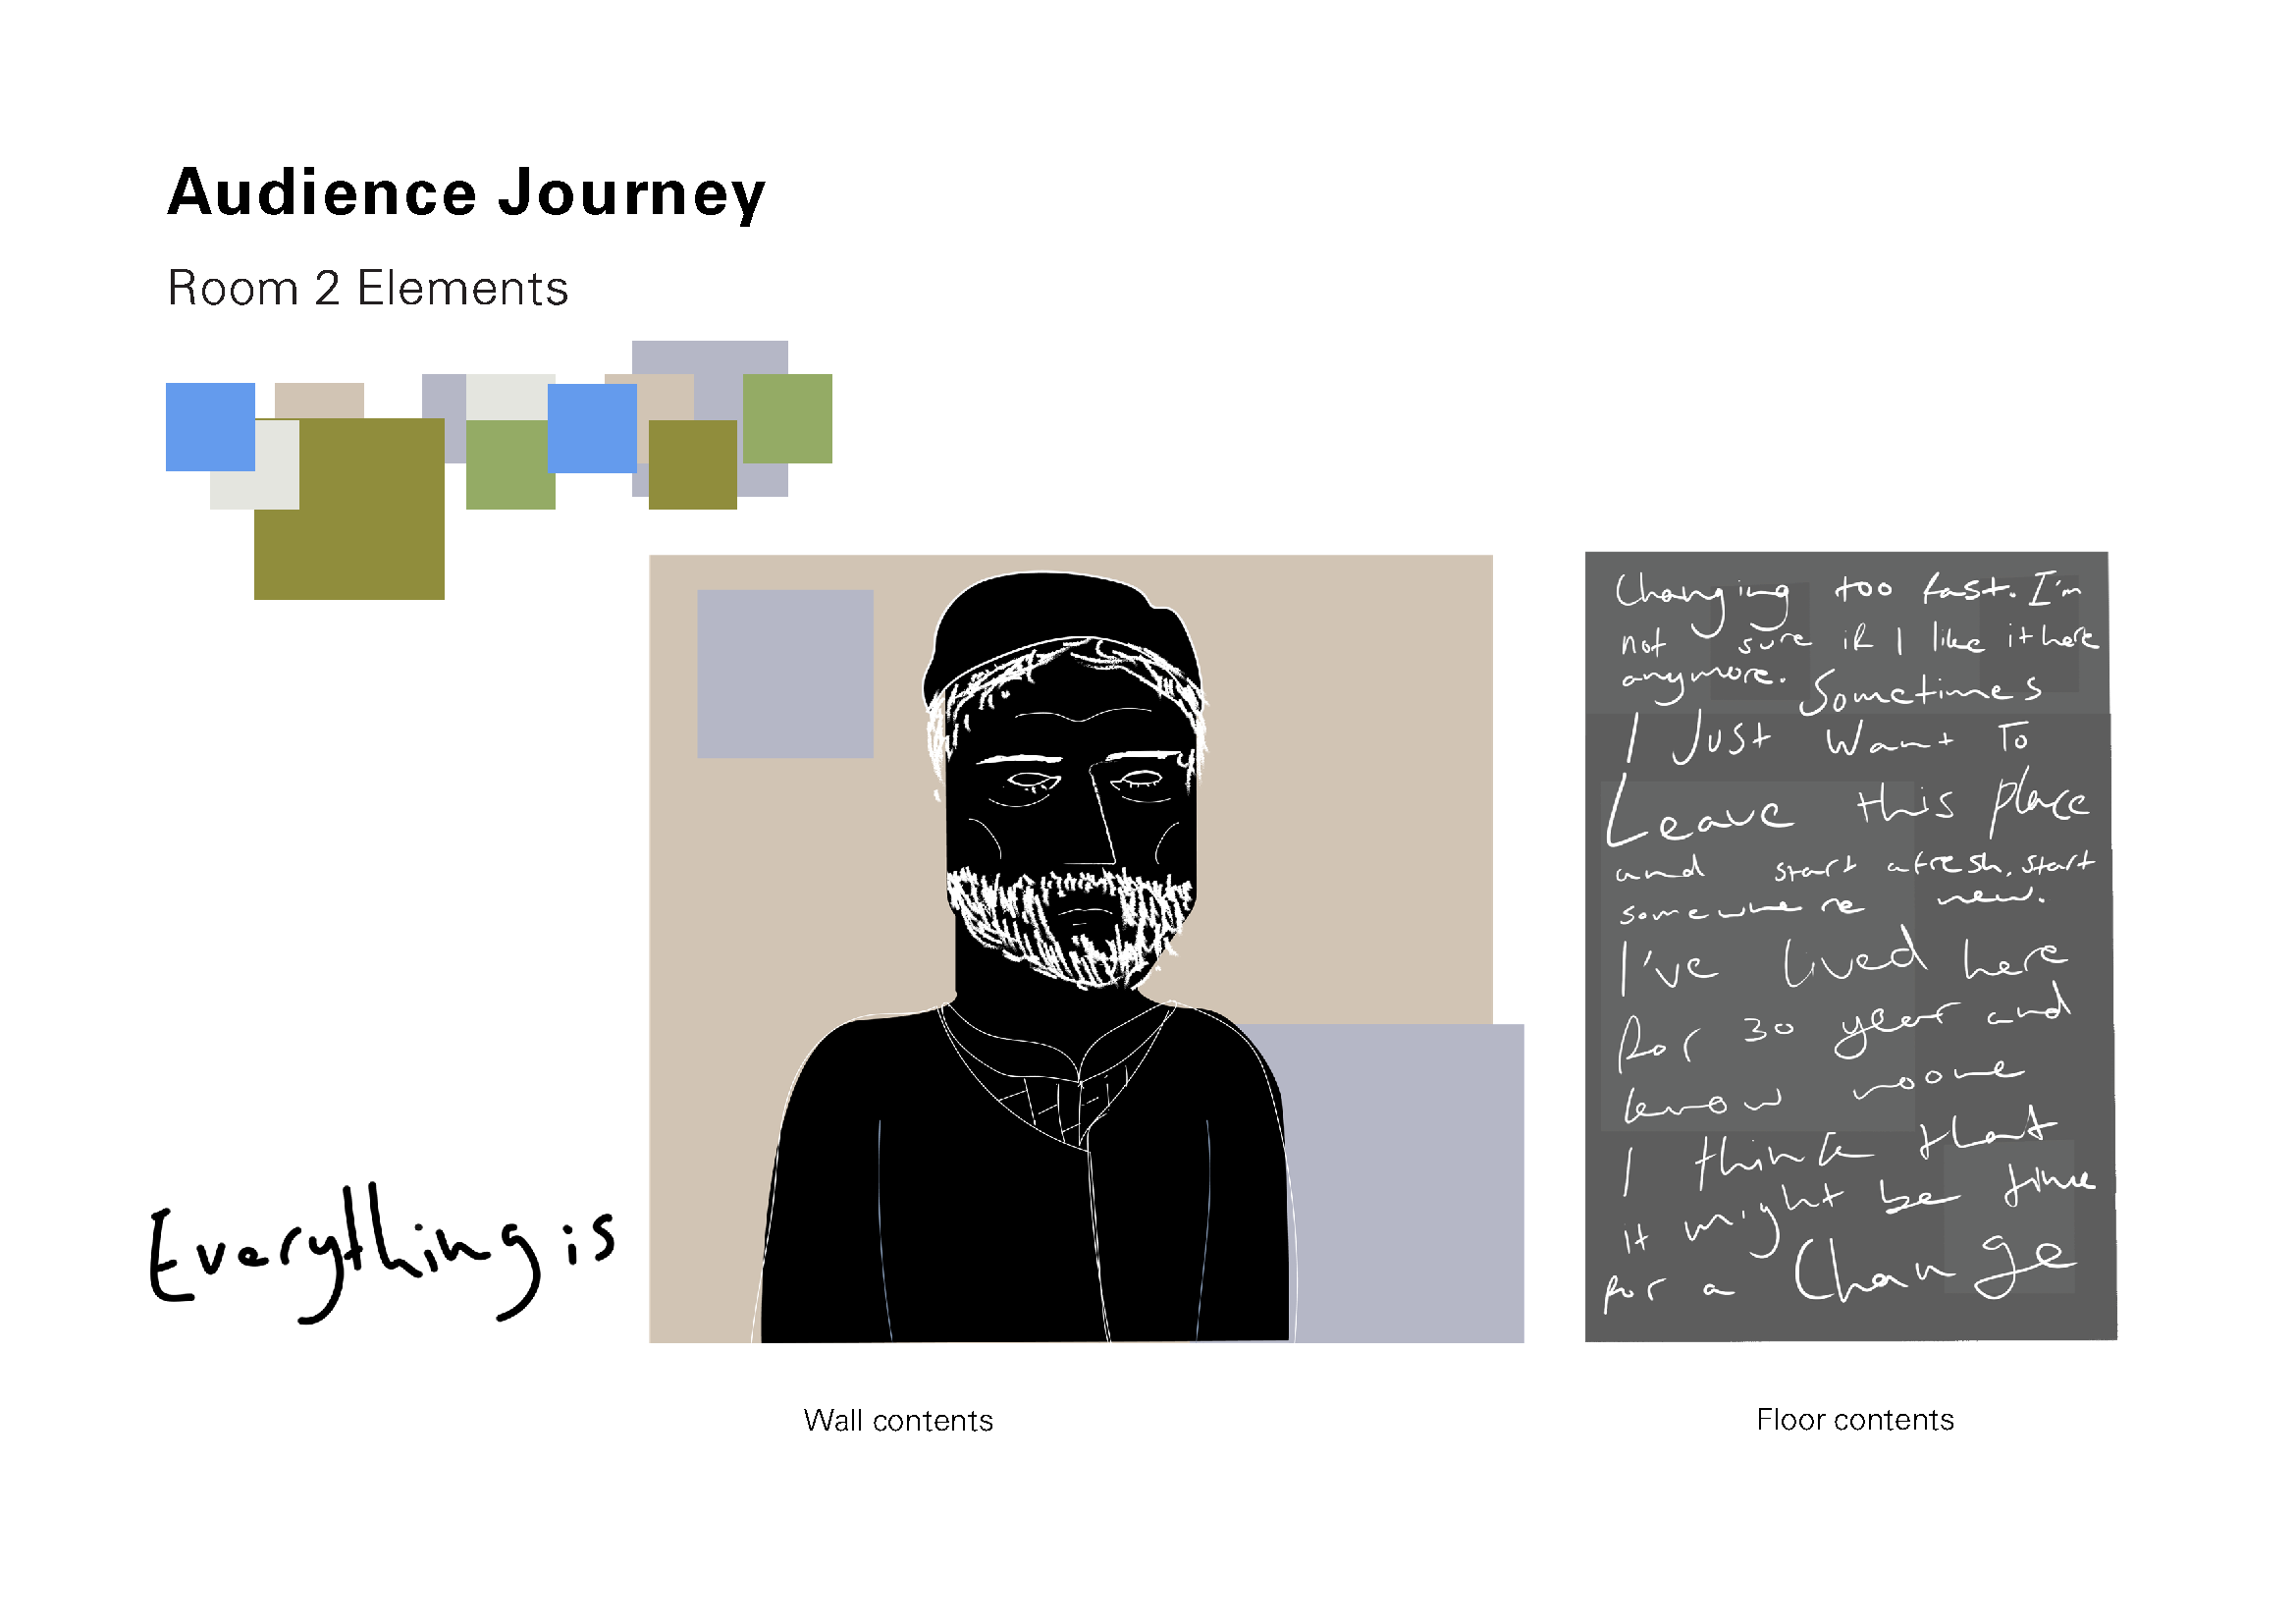 Audience Journey
Room 2 Elements
Everything is
Changing too fast. I'm
not sure if I like it here
anymore. Sometimes
I Just Want To
Leave this place
and start afresh, start
somewhere new.
I've lived here
for 30 year and
know noone
I think that
it might be time
for a Change
Wall contents
Floor contents